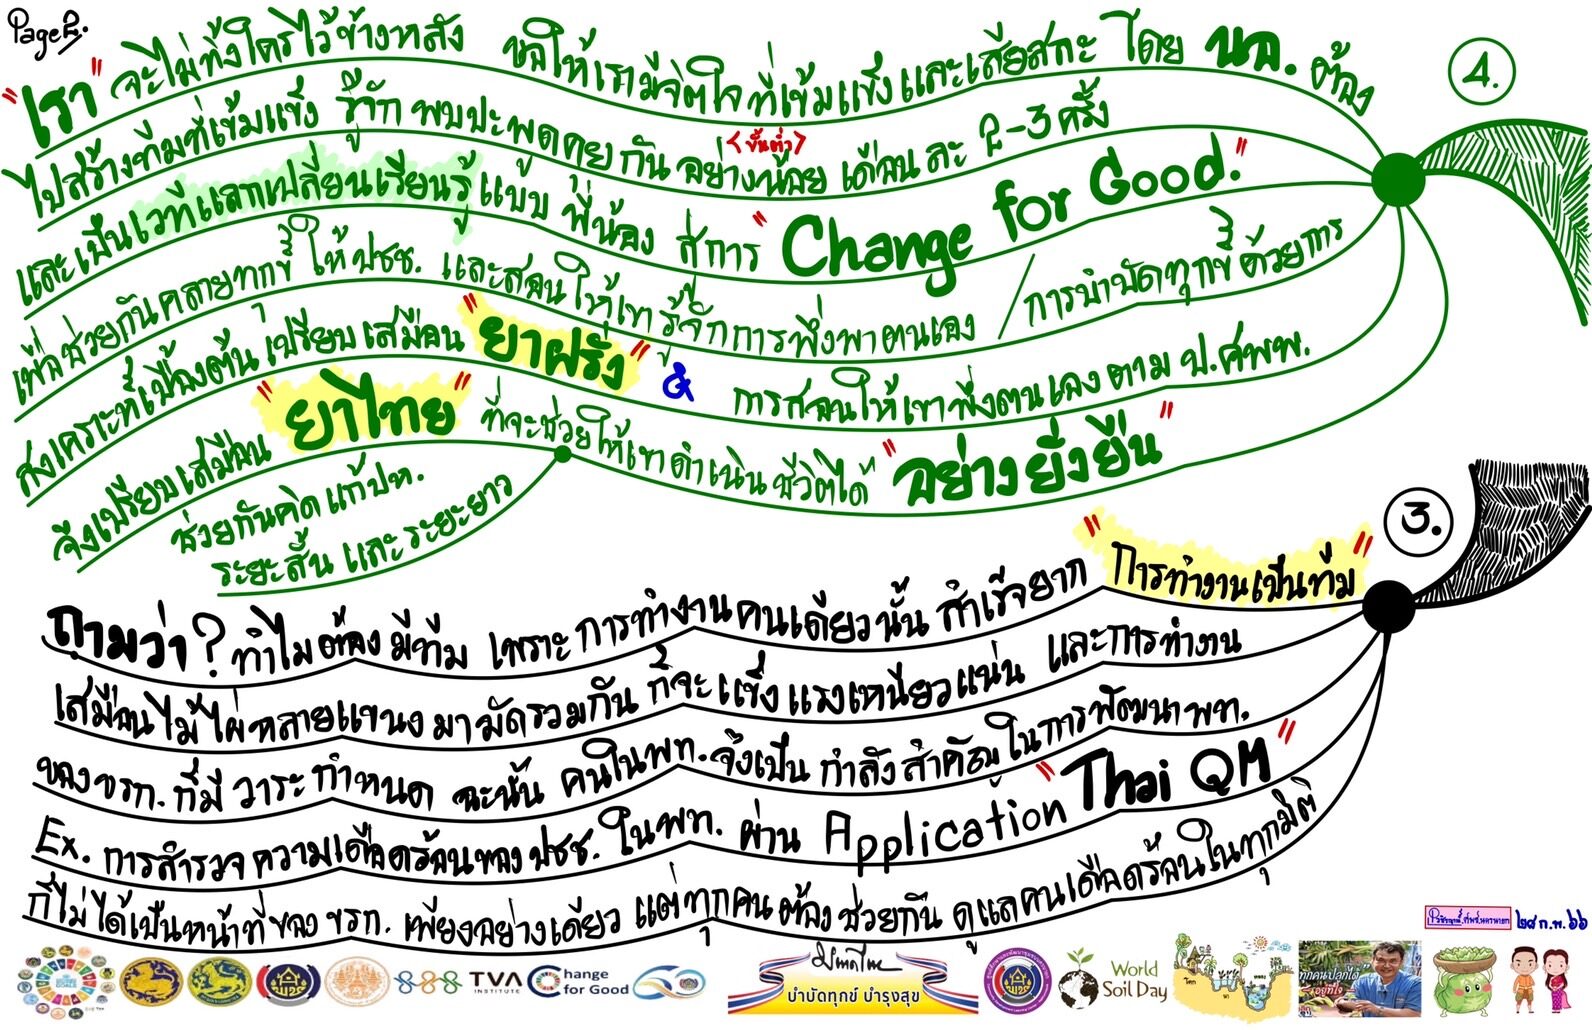 Page 2.
4.
"เรา" จะไม่ทิ้งใครไว้ข้างหลัง ขอให้เรามีจิตใจที่เข้มแข็งและเสียสละ โดย นอ. ต้อง
ไปสร้างทีมที่เข้มแข็ง รู้จัก พบปะพูดคุยกัน อย่างน้อย <ขั้นต่ำ> เดือนละ 2-3 ครั้ง
และเป็นเวทีแลกเปลี่ยนเรียนรู้ แบบ พี่น้อง สู่การ "Change for Good."
เพื่อช่วยกันคลายทุกข์ ให้ ปชช. และสอนให้เขารู้จักการพึ่งพาตนเอง / การบำบัดทุกข์ ด้วยการ
สงเคราะห์เบื้องต้น เปรียบเสมือน "ยาฝรั่ง" & การสอนให้เขาพึ่งตนเอง ตาม ป.ศพพ.
จึงเปรียบเสมือน "ยาไทย" ที่จะช่วยให้เขาดำเนินชีวิตได้ "อย่างยั่งยืน"
ช่วยกันคิด แก้ปห.
ระยะสั้น และ ระยะยาว
3.
ถามว่า? ทำไมต้องมีทีม เพราะ การทำงานคนเดียวนั้น สำเร็จยาก "การทำงานเป็นทีม"
เสมือนไม้ไผ่หลายแขนง มามัดรวมกัน ก็จะ แข็งแรงเหนียวแน่น และการทำงาน
ของ ขรก. ก็มี วาระกำหนด ฉะนั้น คนในพท. จึงเป็น กำลังสำคัญในการพัฒนา พท.
Ex. การสำรวจ ความเดือดร้อนของ ปชช. ในพท. ผ่าน Application "Thai QM"
ก็ไม่ได้เป็นหน้าที่ของ ขรก. เพียงอย่างเดียว แต่ทุกคน ต้อง ช่วยกัน ดูแลคนเดือดร้อนในทุกมิติ
๒๘ ก.พ. ๖๖
TVA
INSTITUTE
Change
for Good
บำบัดทุกข์ บำรุงสุข
World
Soil Day
ทุกคนปลูกได้
อยู่ที่ใจ